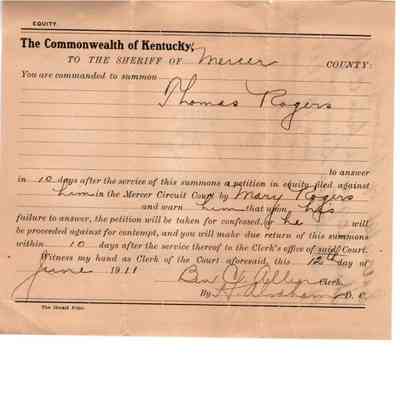 EQUITY.
The Commonwealth of Kentucky,
TO THE SHERIFF OF Mercer COUNTY:
You are commanded to summon
Thomas Rogers
to answer
in 10 days after the service of this summons a petition in equity filed against
him in the Mercer Circuit Court by Mary Rogers
and warn him that upon his
failure to answer, the petition will be taken for confessed, or he will
be proceeded against for contempt, and you will make due return of this summons
within 10 days after the service thereof to the Clerk's office of said Court.
Witness my hand as Clerk of the Court aforesaid, this 12th day of
June 1911
Ben C. Allin Clerk
By D. C.
The Herald Print.